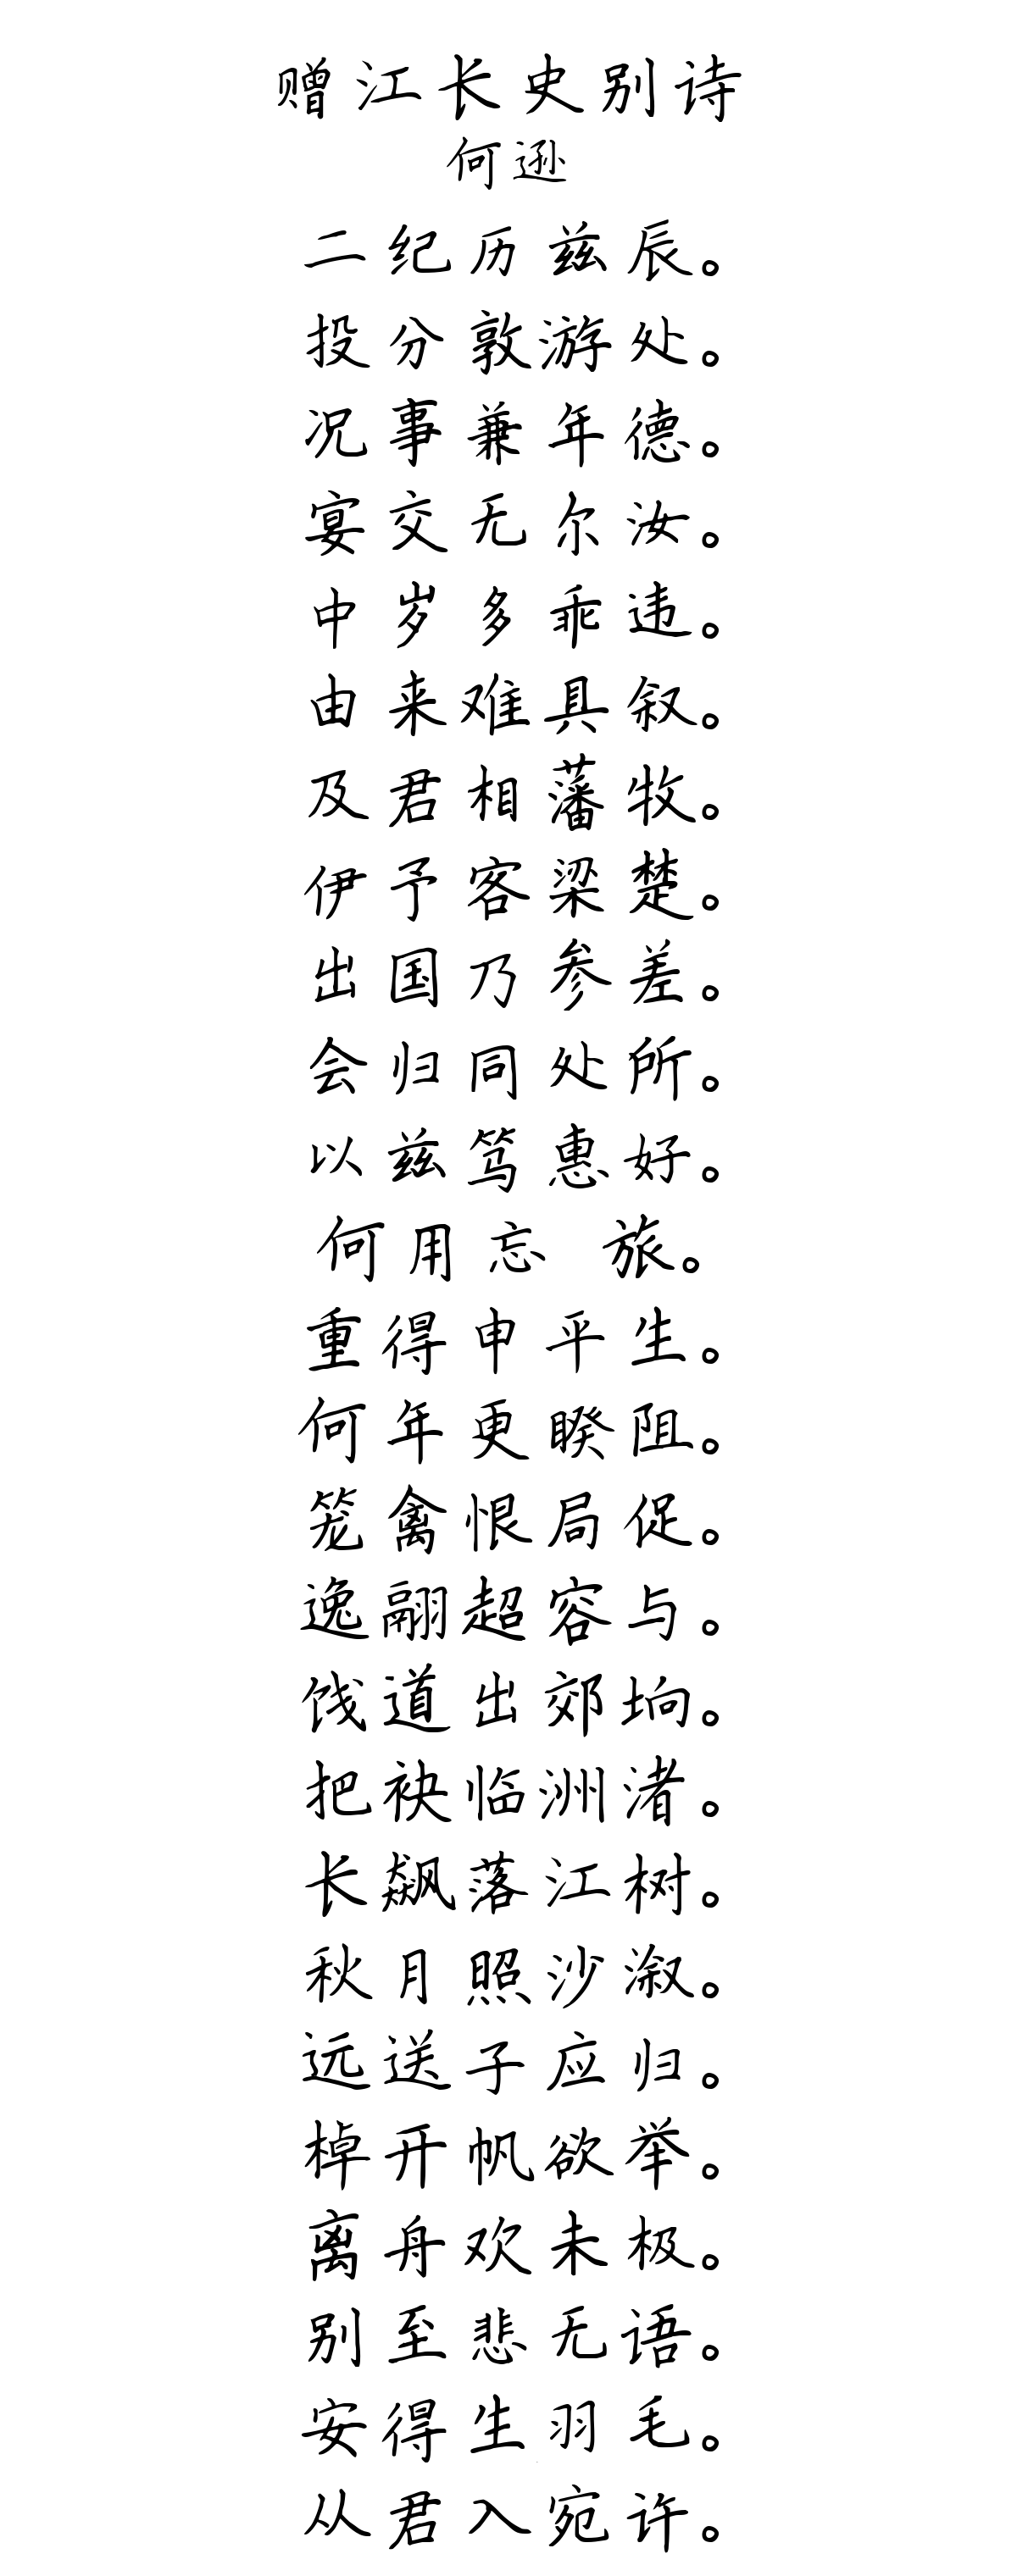 赠江长史别诗
何逊
二纪历兹辰。
投分敦游处。
况事兼年德。
宴交无尔汝。
中岁多乖违。
由来难具叙。
及君相藩牧。
伊予客梁楚。
出国乃参差。
会归同处所。
以兹笃惠好。
何用忘 旅。
重得申平生。
何年更睽阻。
笼禽恨局促。
逸翮超容与。
饯道出郊坰。
把袂临洲渚。
长飙落江树。
秋月照沙溆。
远送子应归。
棹开帆欲举。
离舟欢未极。
别至悲无语。
安得生羽毛。
从君入宛许。